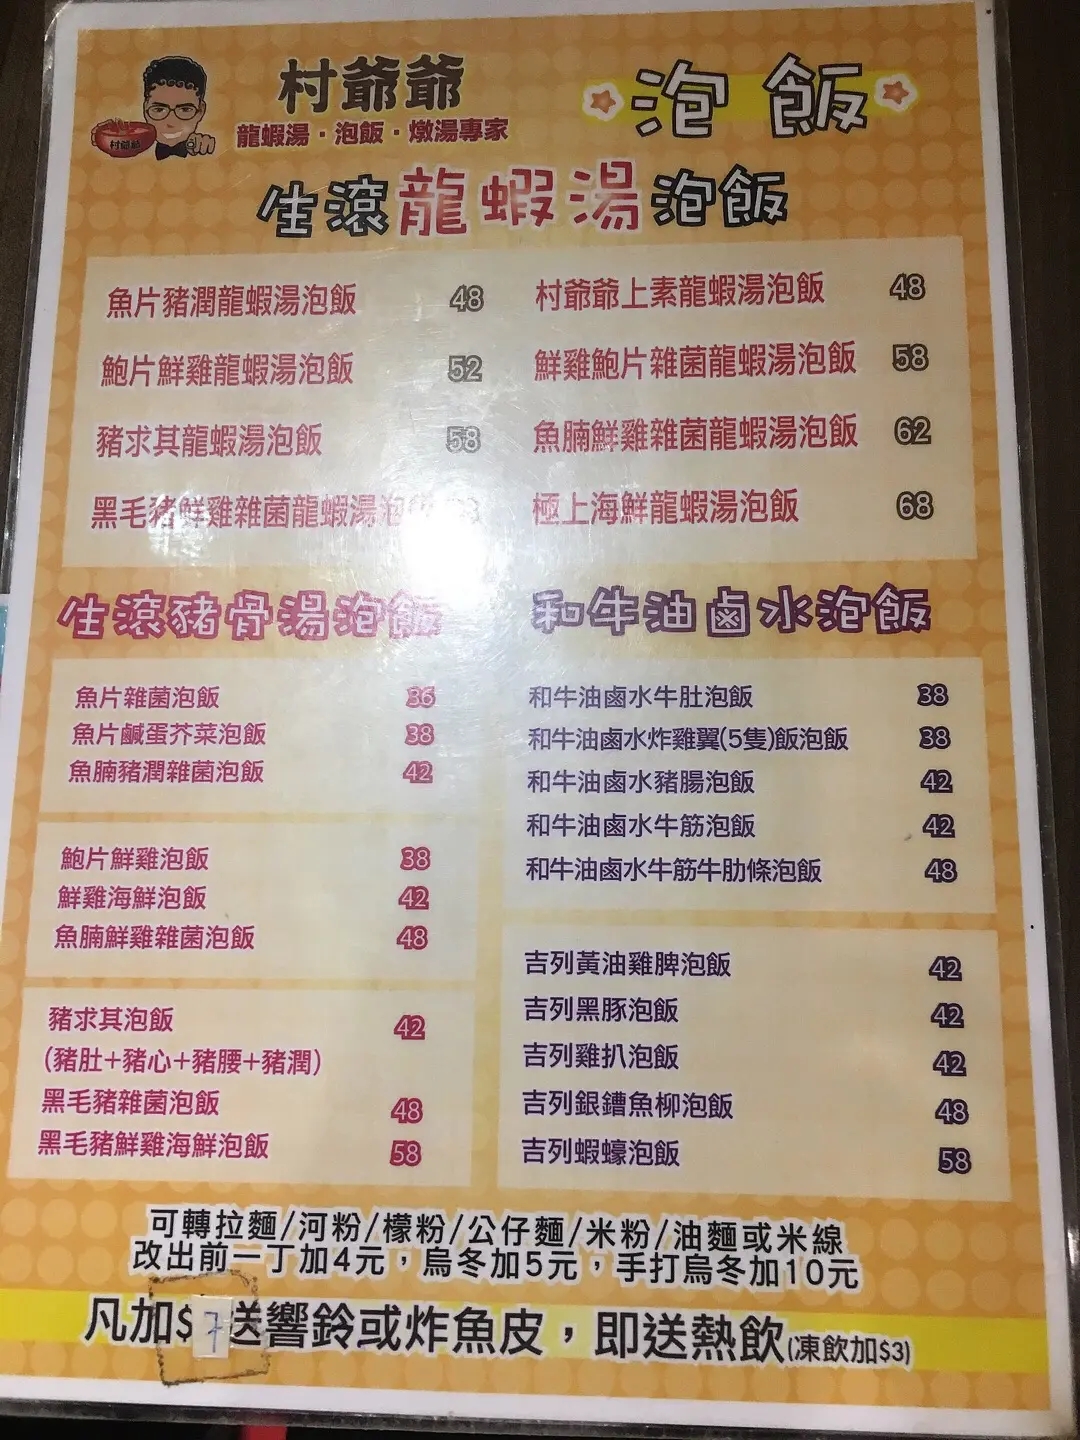 村爺爺
龍蝦湯·泡飯·燉湯專家
村爺爺
泡飯
生滾龍蝦湯泡飯
魚片豬潤龍蝦湯泡飯 48
鮑片鮮雞龍蝦湯泡飯 52
豬求其龍蝦湯泡飯 58
黑毛豬鮮雞雜菌龍蝦湯泡飯
村爺爺上素龍蝦湯泡飯 48
鮮雞鮑片雜菌龍蝦湯泡飯 58
魚腩鮮雞雜菌龍蝦湯泡飯 62
極上海鮮龍蝦湯泡飯 68
生滾豬骨湯泡飯
魚片雜菌泡飯 36
魚片鹹蛋芥菜泡飯 38
魚腩豬潤雜菌泡飯 42
鮑片鮮雞泡飯 38
鮮雞海鮮泡飯 42
魚腩鮮雞雜菌泡飯 48
豬求其泡飯 42
(豬肚+豬心+豬腰+豬潤)
黑毛豬雜菌泡飯 48
黑毛豬鮮雞海鮮泡飯 58
和牛油鹵水泡飯
和牛油鹵水牛肚泡飯 38
和牛油鹵水炸雞翼(5隻)飯泡飯 38
和牛油鹵水豬腸泡飯 42
和牛油鹵水牛筋泡飯 42
和牛油鹵水牛筋牛肋條泡飯 48
吉列黃油雞脾泡飯 42
吉列黑豚泡飯 42
吉列雞扒泡飯 42
吉列銀鱈魚柳泡飯 48
吉列蝦蠔泡飯 58
可轉拉麵/河粉/檬粉/公仔麵/米粉/油麵或米線
改出前一丁加4元，烏冬加5元，手打烏冬加10元
凡加$7送響鈴或炸魚皮，即送熱飲(凍飲加$3)